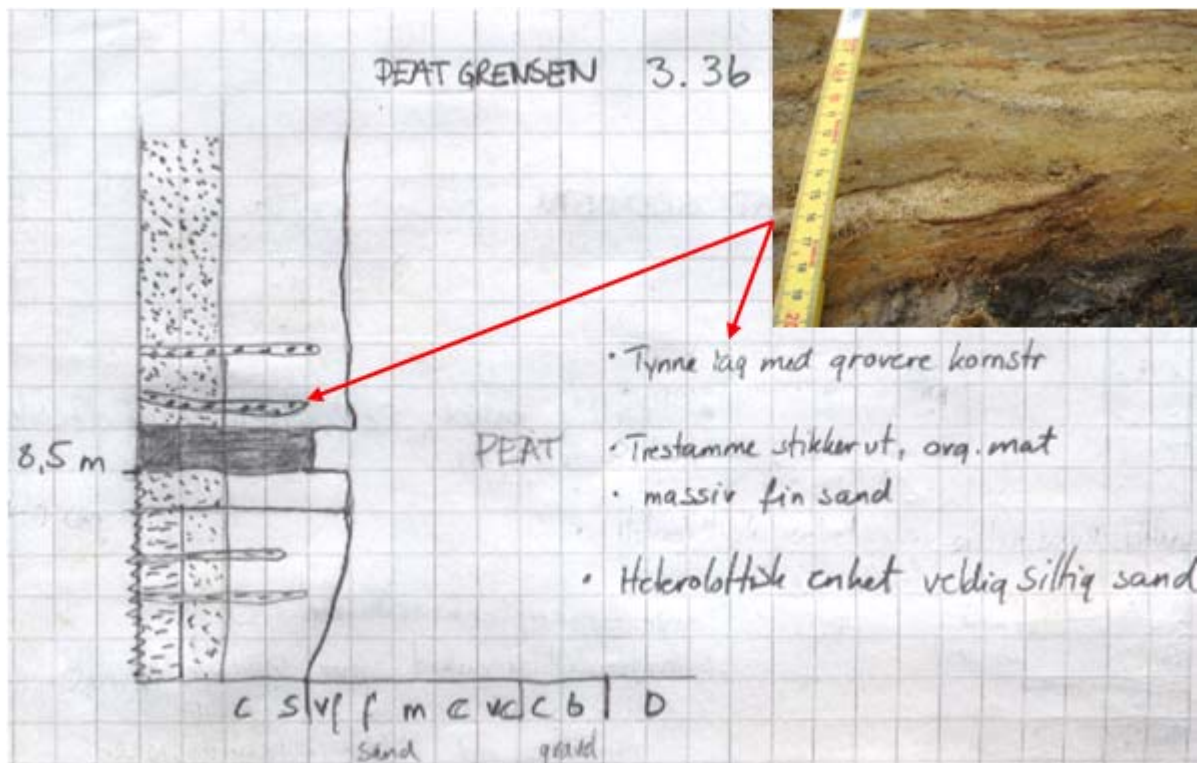 PEAT GRENSEN 3.3b
• Tynne lag med grovere kornstr
8,5 m
PEAT
• Trestamme stikker ut, org. mat
• massiv fin sand
• Heterolottisk enhet veldig siltig sand
c s vf f m c vc c b D
sand gravel